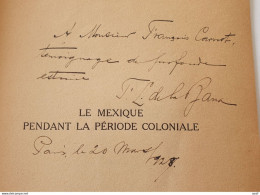 A Monsieur François Carnot,
témoignage de profonde
estime
F. L. de la Barra
LE MEXIQUE
PENDANT LA PÉRIODE COLONIALE
Paris le 20 Mars 1928.